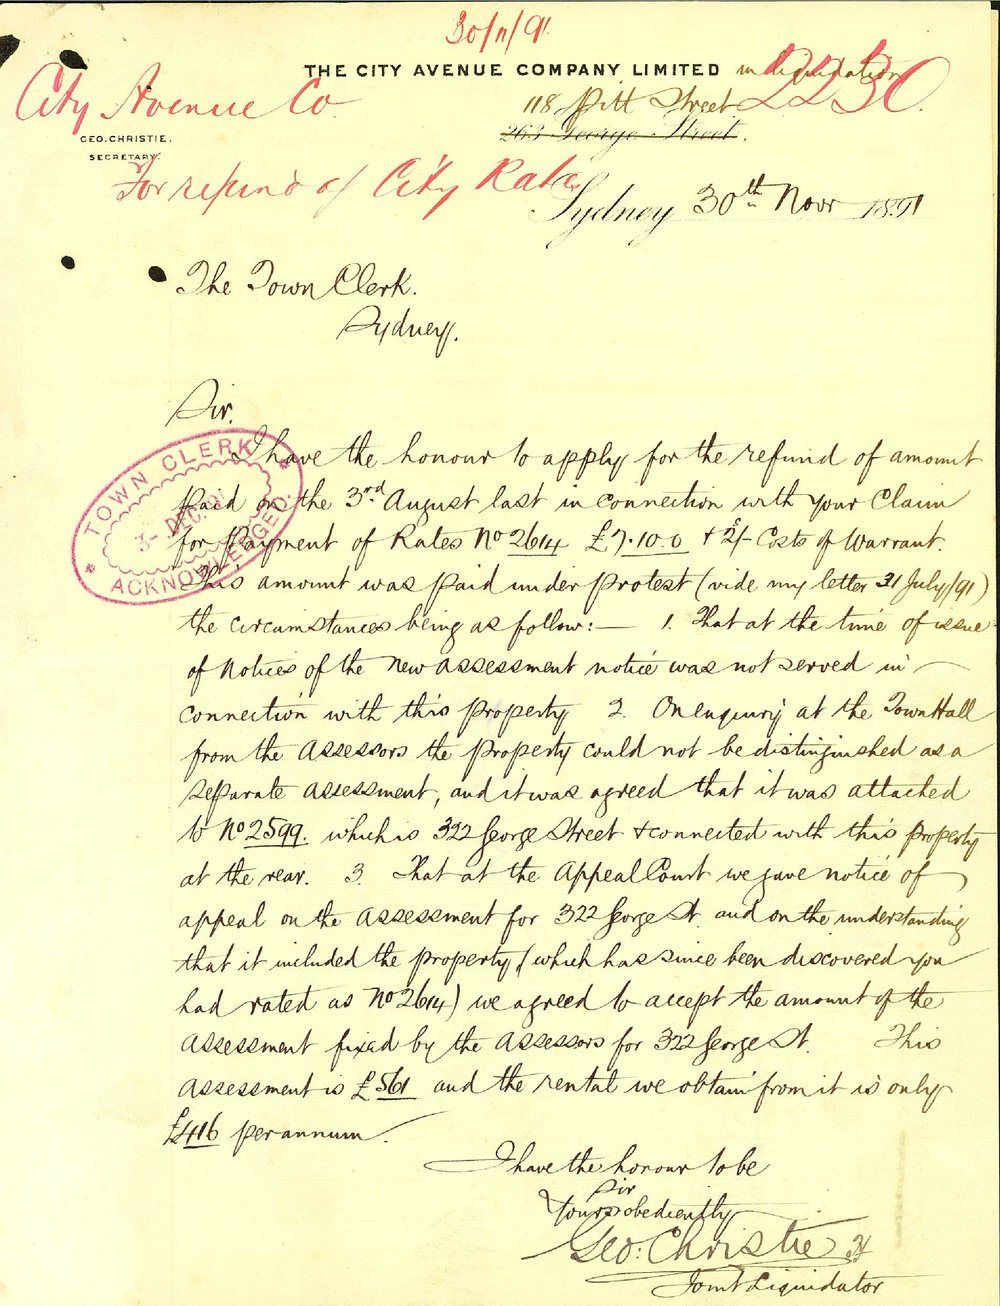 30/11/91
THE CITY AVENUE COMPANY LIMITED in liquidation
2230
City Avenue Co
118 Pitt Street
263 George Street.
GEO. CHRISTIE.
SECRETARY.
For refund of City Rate
Sydney 30th Novr 1891
The Town Clerk.
Sydney.
Sir,
I have the honour to apply for the refund of amount
paid on the 3rd August last in connection with your Claim
for Payment of Rates No 2614 £7.10.0 + £2/- Costs of Warrant.
This amount was paid under protest (vide my letter 31 July/91)
the circumstances being as follow:— 1. That at the time of issue
of Notices of the new assessment notice was not served in
connection with this property 2. On enquiry at the Town Hall
from the Assessors the property could not be distinguished as a
separate assessment, and it was agreed that it was attached
to No 2599. which is 322 George Street + connected with this property
at the rear. 3. That at the Appeal Court we gave notice of
appeal on the assessment for 322 George St. and on the understanding
that it included the property (which has since been discovered you
had rated as No 2614) we agreed to accept the amount of the
assessment fixed by the Assessors for 322 George St. This
assessment is £561 and the rental we obtain from it is only
£416 per annum.
I have the honour to be
Sir
Yours obediently
Geo: Christie
Joint Liquidator
TOWN CLERK
3- DEC. 91
ACKNOWLEDGED.